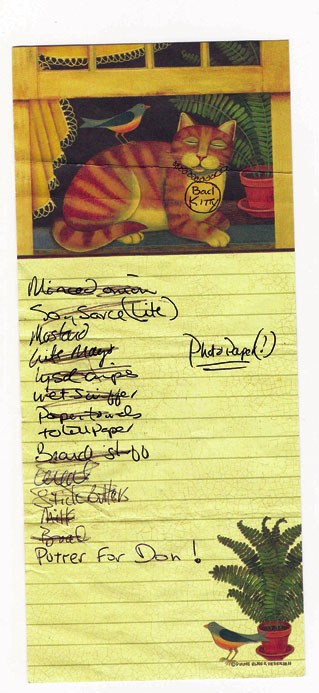 Bad
Kitty
Minced onion
Soy Sauce (Lite)
Mustard
Lite Mayo
Photo Paper (!)
Lysol wipes
wet Swiffer
Paper towels
toilet Paper
Board stuff
Cereal
Stick butters
Milk
Bread
Putter For Don!